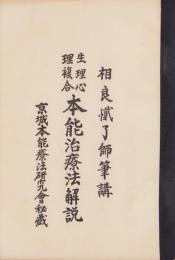 相良懺了師筆講
生理心理複合
本能治療法解説
京城本能療法研究會秘藏